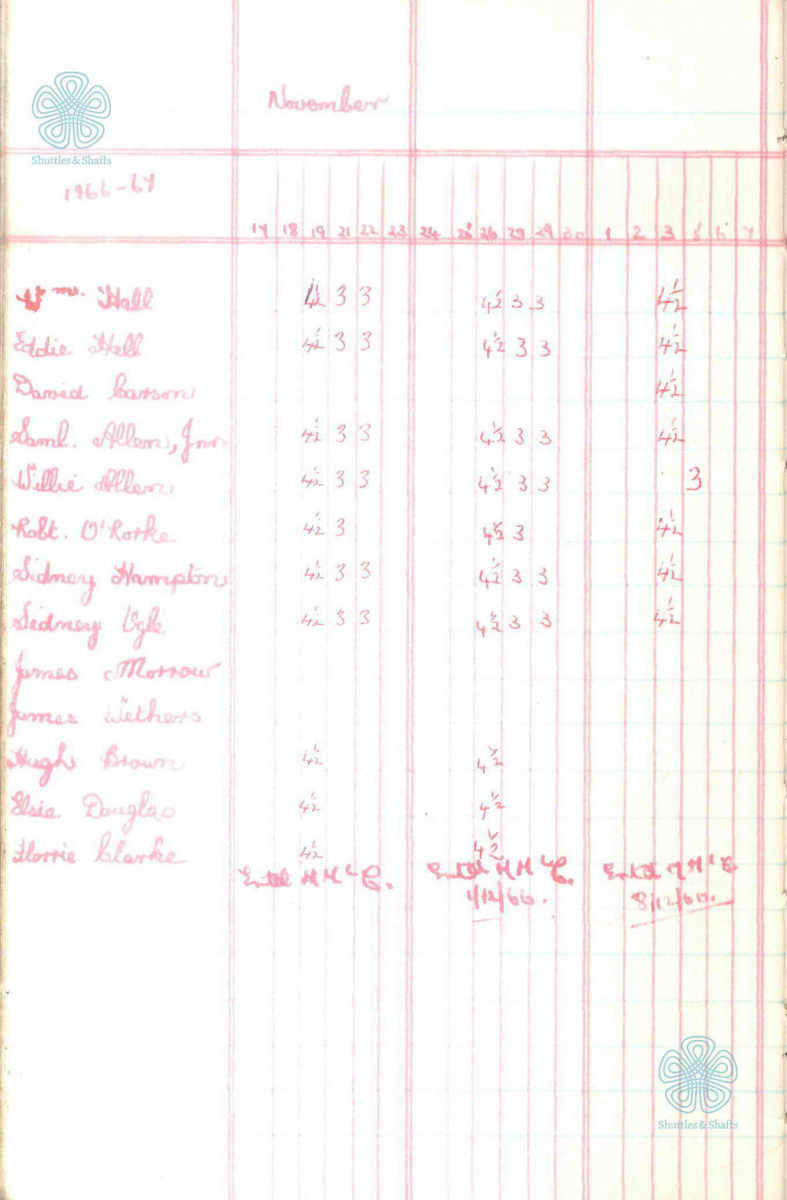 November
Shuttles & Shafts
1966-67
17 18 19 21 22 23 24 25 26 28 29 30 1 2 3 5 6 7
Wm. Hall 4½ 3 3 4½ 3 3 4½
Eddie Hall 4½ 3 3 4½ 3 3 4½
David Carson 4½
Saml. Allen, Jnr. 4½ 3 3 4½ 3 3 4½
Willie Allen 4½ 3 3 4½ 3 3 3
Robt. O'Rorke 4½ 3 4½ 3 4½
Sidney Hampton 4½ 3 3 4½ 3 3 4½
Sidney 4½ 3 3 4½ 3 3 4½
James Morrow
James Wethers
Hugh Brown 4½ 4½
Elsie Douglas 4½ 4½
Florrie Clarke 4½ 4½
Entd Entd Entd
1/12/66. 8/12/66.
Shuttles & Shafts